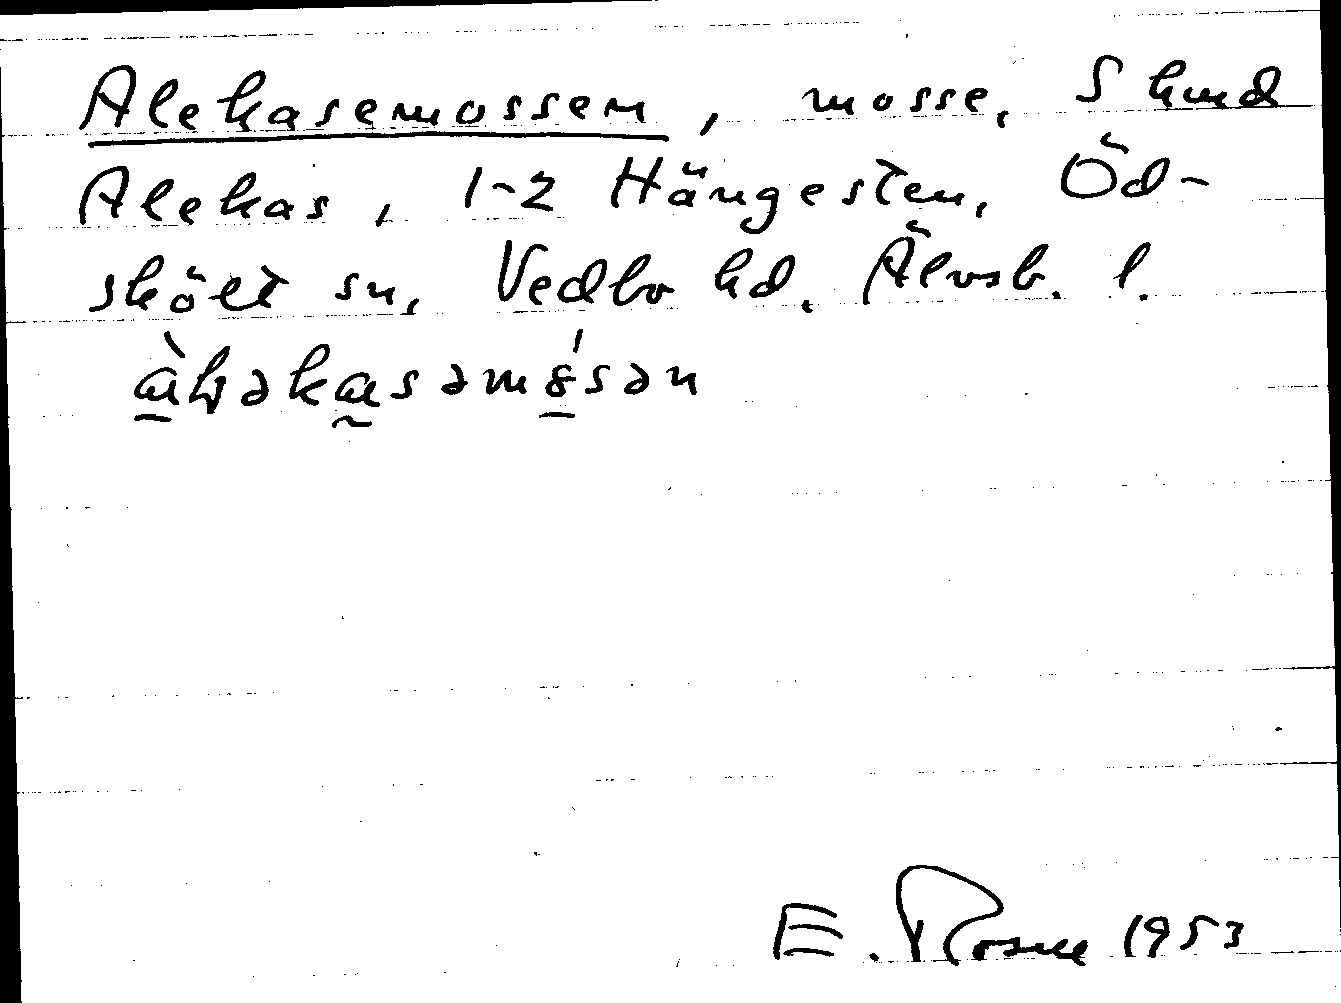 Alekasemossen, mosse, S hmd
Alekas, 1-2 Hängesten, Öd-
skölt sn, Vedbo hd. Älvsb. l.
àləkasəmósən
E. Rosell 1953